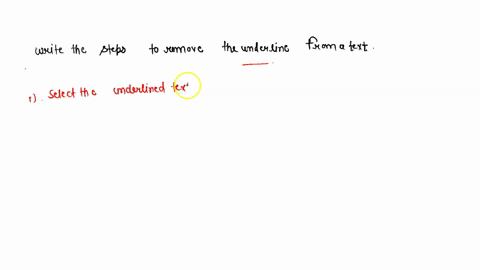 write the steps to remove the underline from a text.
1). Select the underlined tex